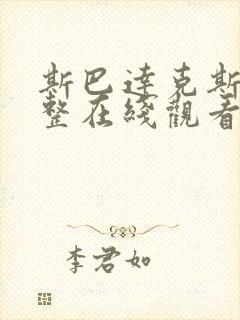 斯巴達克斯
整在綫觀看
李君如